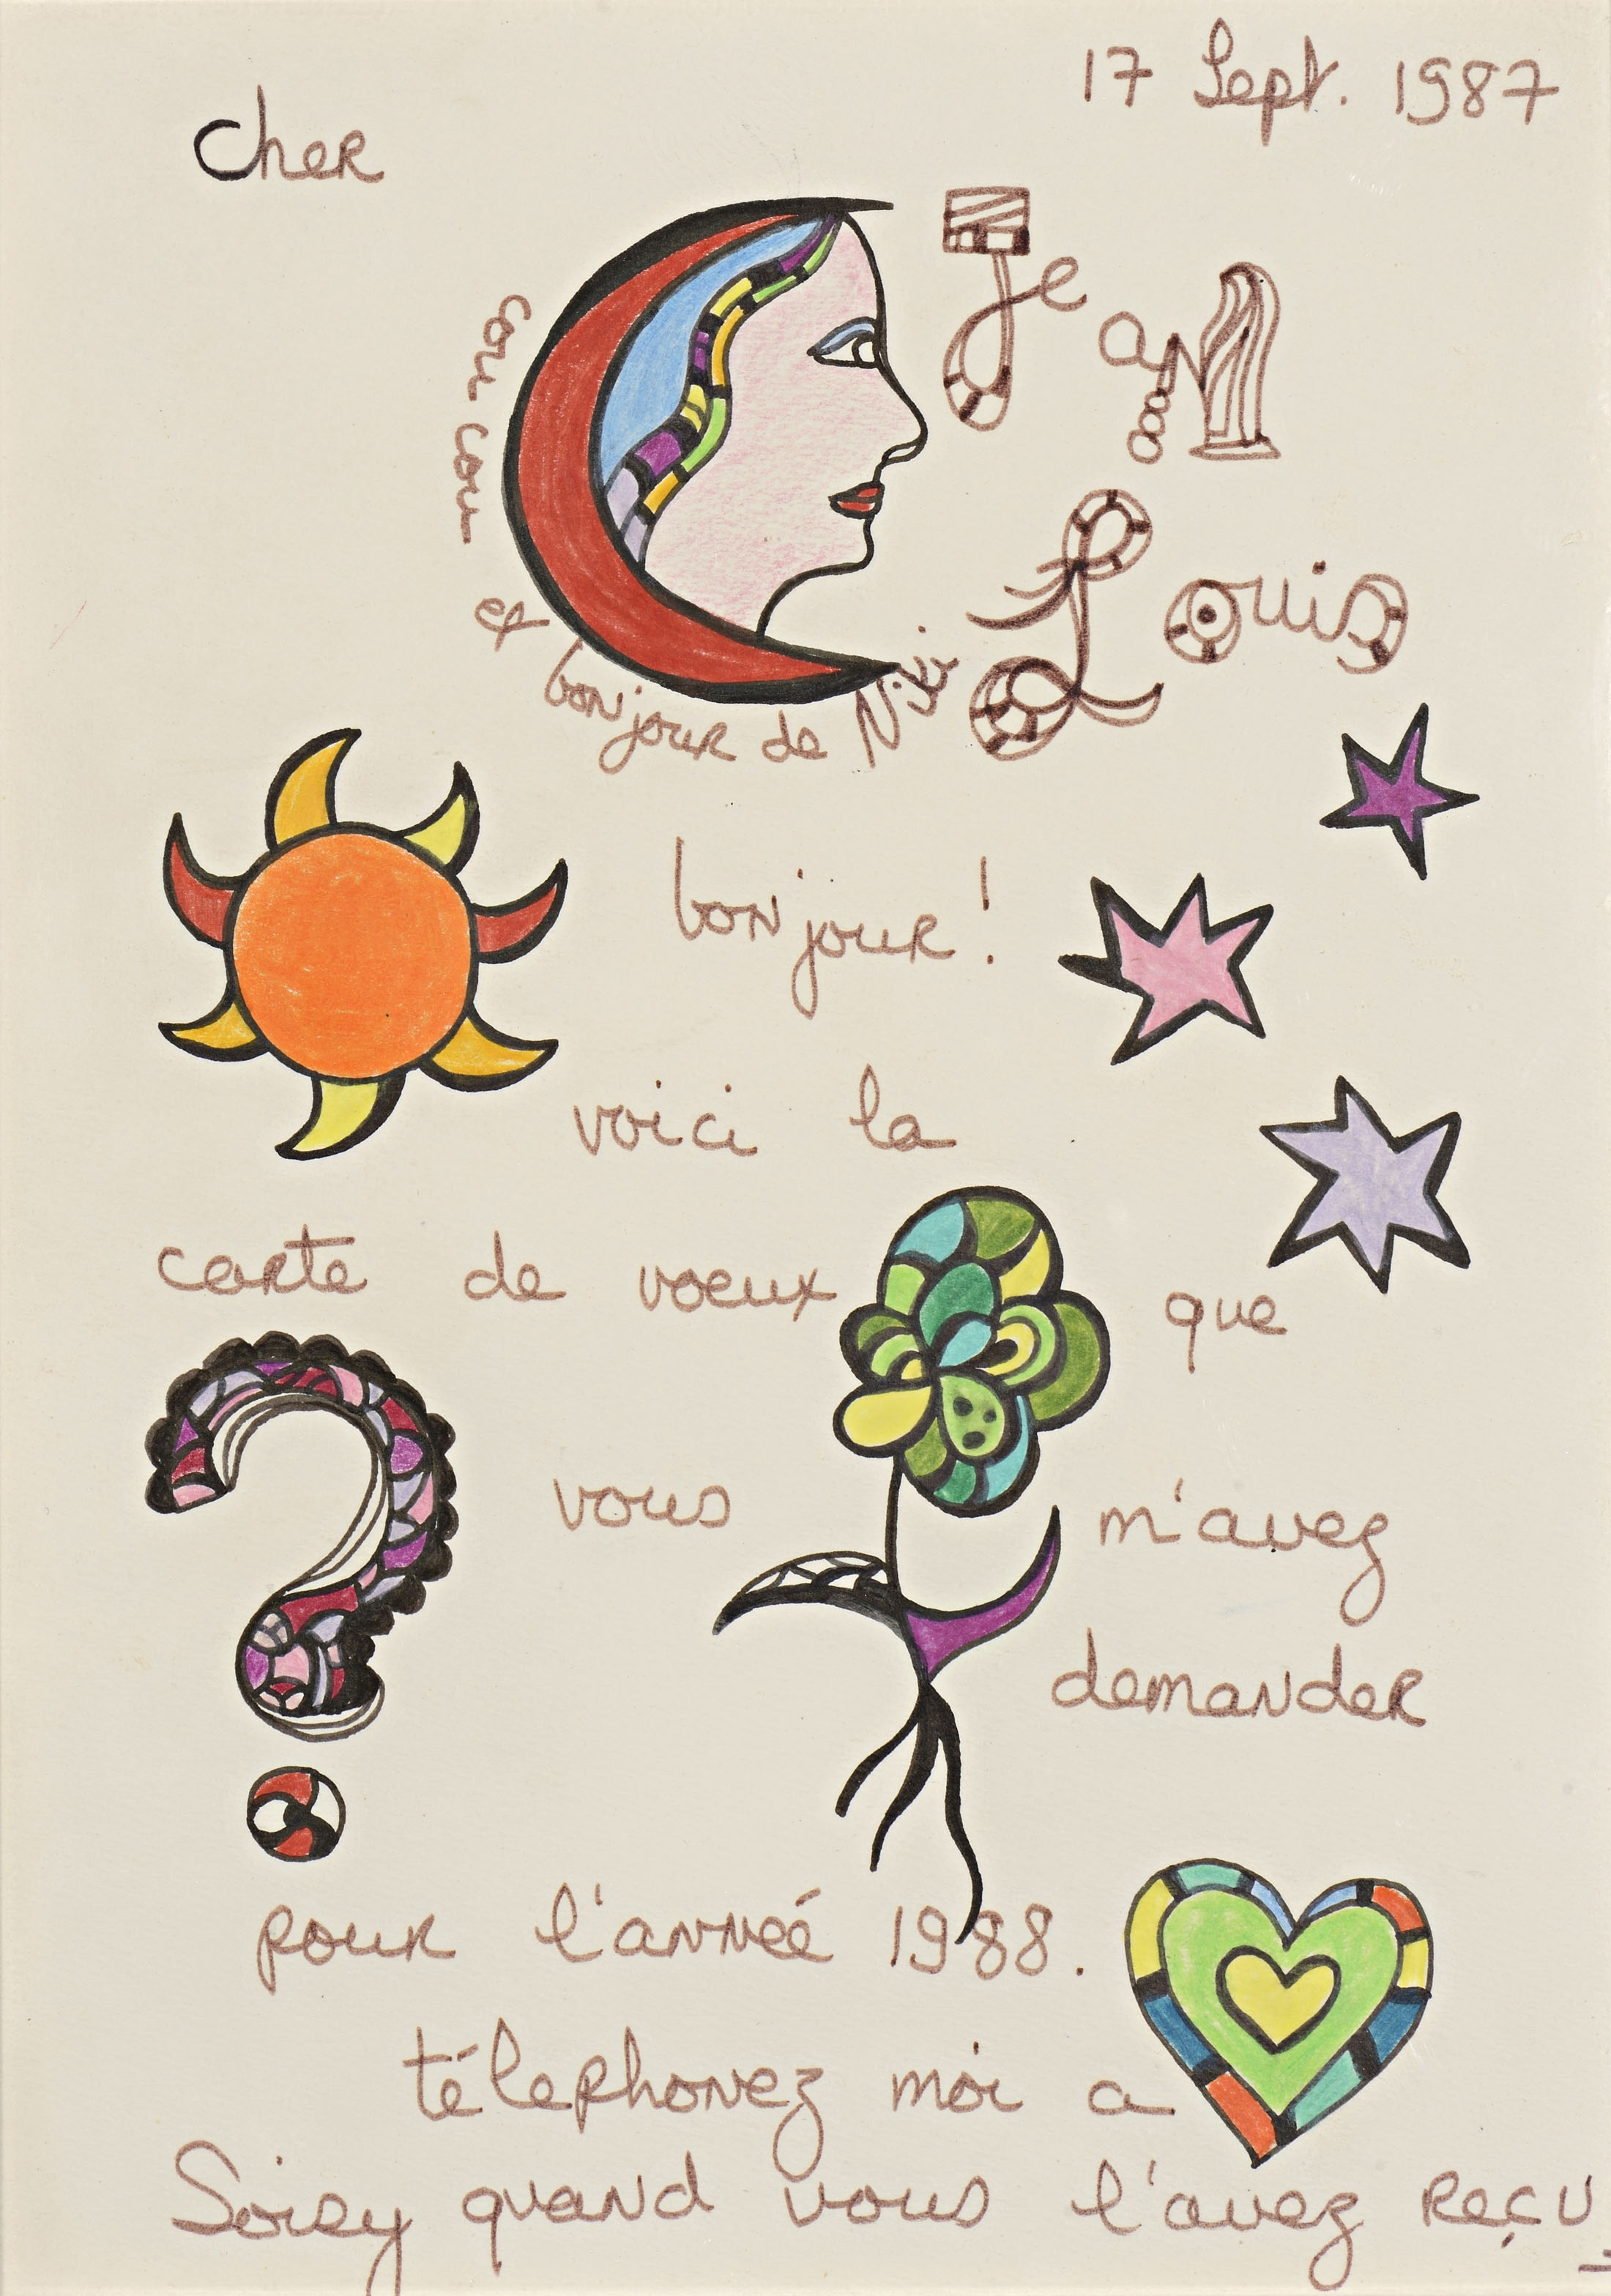 17 Sept. 1987
cher
Jean
Louis
cou cou et bonjour de Niki
bonjour!
voici la
carte de voeux que
vous m'avez
demander
pour l'anneé 1988.
télephonez moi a
Soisy quand vous l'avez reçu